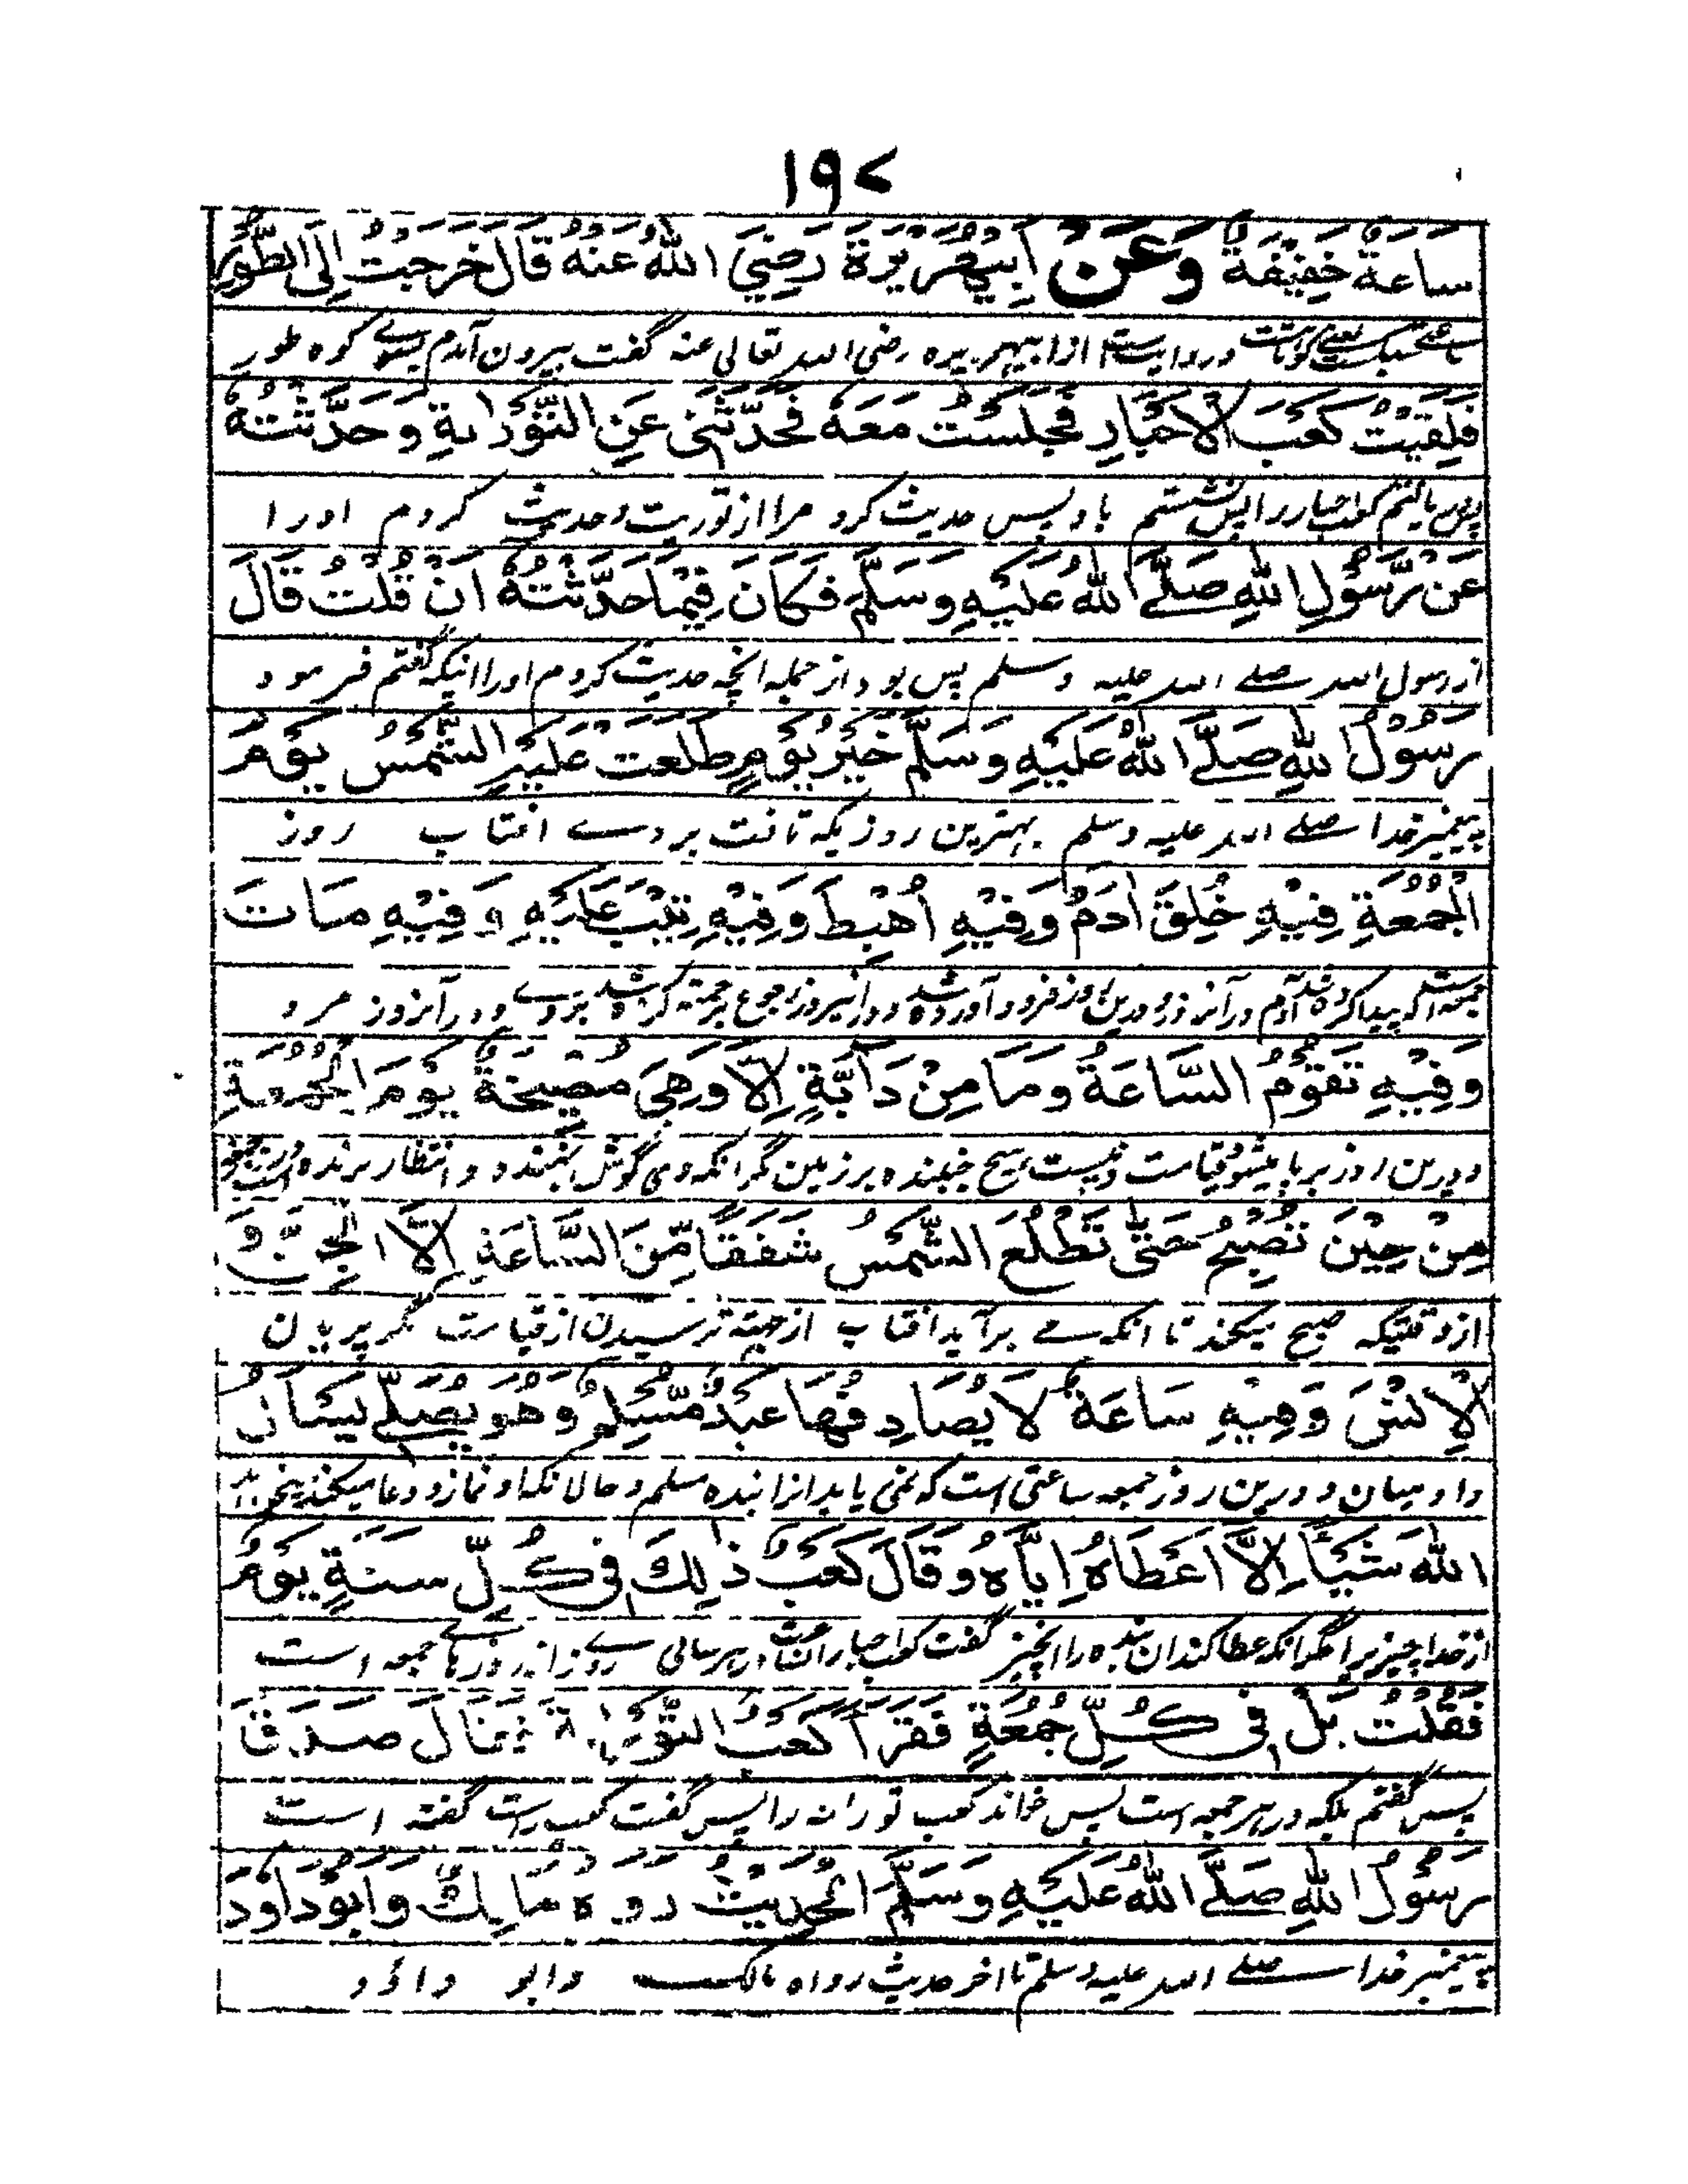 ۱۹۷
سَاعَةٌ خَفِيْفَةٌ وَعَنْ اَبِيْ هُرَيْرَةَ رَضِيَ اللّٰهُ عَنْهُ قَالَ خَرَجْتُ اِلَى الطُّوْرِ
ساعتے سبک ست یعنے کوتاہست و روایست از ابیہریرہ رضی اللہ تعالی عنہ گفت بیرون آمدم بسوے کوہ طور
فَلَقِيْتُ كَعْبَ الْاَحْبَارِ فَجَلَسْتُ مَعَهٗ فَحَدَّثَنِيْ عَنِ التَّوْرٰىةِ وَحَدَّثْتُهٗ
پس یافتم کعب احبار را پس نشستم باو پس حدیث کرد مرا از توریت و حدیث کردم اورا
عَنْ رَّسُوْلِ اللّٰهِ صَلَّے اللّٰهُ عَلَيْهِ وَسَلَّمَ فَكَانَ فِيْمَا حَدَّثْتُهٗ اَنْ قُلْتُ قَالَ
از رسول اللہ صلے اللہ علیہ وسلم پس بود از جملہ انچہ حدیث کردم اورا اینکہ گفتم فرمود
رَسُوْلُ اللّٰهِ صَلَّے اللّٰهُ عَلَيْهِ وَسَلَّمَ خَيْرُ يَوْمٍ طَلَعَتْ عَلَيْهِ الشَّمْسُ يَوْمُ
پیغمبر خدا صلے اللہ علیہ وسلم بہترین روزیکہ تافت بروے افتاب روز
الْجُمُعَةِ فِيْهِ خُلِقَ اٰدَمُ وَفِيْهِ اُهْبِطَ وَفِيْهِ تِيْبَ عَلَيْهِ وَفِيْهِ مَاتَ
جمعہ است کہ پیدا کردہ شد آدم درآنروز و درین روز فرود آوردہ شد و درانروز رجوع برحمتہ کردہ شد بروے و در آنروز مرد
وَفِيْهِ تَقُوْمُ السَّاعَةُ وَمَا مِنْ دَآبَّةٍ اِلَّا وَهِيَ مُصِيْخَةٌ يَوْمَ الْجُمُعَةِ
و درین روز برپا میشود قیامت و نیست ہیچ جنبندہ بر زمین مگر انکہ وی گوش نہندہ و انتظار برندہ
مِنْ حِيْنَ تُصْبِحُ حَتّٰى تَطْلُعَ الشَّمْسُ شَفَقًا مِّنَ السَّاعَةِ اِلَّا الْجِنَّ وَ
از وقتیکہ صبح میکند تا انکہ مے برآید افتاب از جہتہ ترسیدن از قیامت مگر پریان
الْاِنْسَ وَفِيْهِ سَاعَةٌ لَا يُصَادِفُهَا عَبْدٌ مُّسْلِمٌ وَهُوَ يُصَلِّے يَسْاَلُ
و ادمیان و درین روز جمعہ ساعتی است کہ نمی یابد انرا بندہ مسلم و حالانکہ او نماز و دعا میکند
اللّٰهَ شَيْئًا اِلَّا اَعْطَاهُ اِيَّاهُ وَقَالَ كَعْبٌ ذٰلِكَ فِيْ كُلِّ سَنَةٍ يَوْمٌ
از خدا چیزیرا مگر انکہ عطا کند ان بندہ را انچیز گفت کعب احبار ان ساعت در ہر سالی روزے از روزہاے جمعہ است
فَقُلْتُ بَلْ فِيْ كُلِّ جُمُعَةٍ فَقَرَأَ كَعْبٌ التَّوْرٰىةَ فَقَالَ صَدَقَ
پس گفتم بلکہ در ہر جمعہ است پس خواند کعب توراة را پس گفت کعب راست گفتہ است
رَسُوْلُ اللّٰهِ صَلَّے اللّٰهُ عَلَيْهِ وَسَلَّمَ الْحَدِيْثُ رواہ مَالِكٌ وَاَبُوْ دَاوٗدَ
پیغمبر خدا صلے اللہ علیہ وسلم تا اخر حدیث رواہ مالک و ابو داؤد